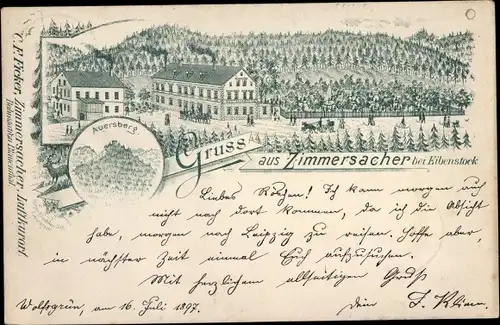 Auersberg
Gruss
aus Zimmersacher bei Eibenstock
Zimmersacher-Luftkurort
Liebes Röschen! Ich kann morgen auch
nicht nach dort kommen, da ich die Absicht
habe, morgen nach Leipzig zu reisen. Hoffe aber,
in nächster Zeit einmal Euch aufzusuchen.
Mit herzlichem allseitigen Gruß
Wolfsgrün, am 16. Juli 1897.
Dein